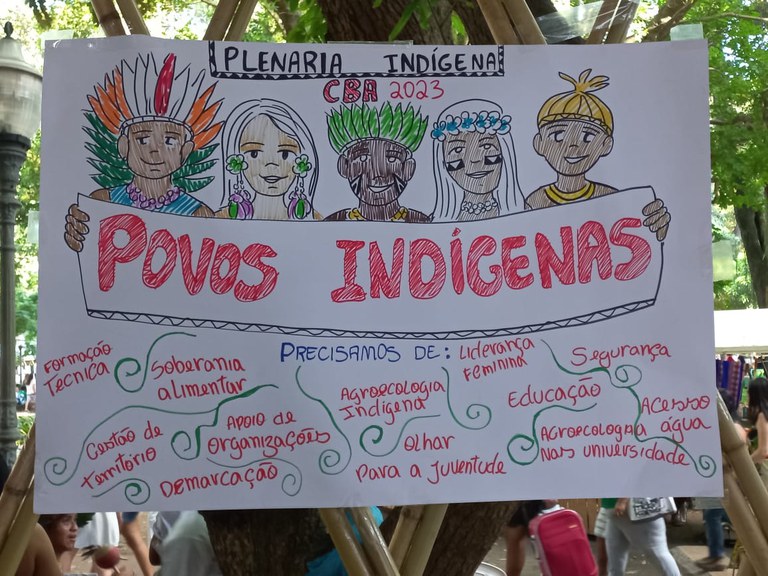 PLENARIA INDÍGENA
CBA 2023
POVOS INDÍGENAS
PRECISAMOS DE:
FORMAÇÃO
TÉCNICA
SOBERANIA
alimentar
LIDERANÇA
FEMININA
SEGURANÇA
AGROECOLOGIA
INDÍGENA
EDUCAÇÃO
GESTÃO DE
TERRITÓRIO
APOIO DE
ORGANIZAÇÕES
DEMARCAÇÃO
OLHAR
PARA A JUVENTUDE
AGROECOLOGIA
NAS UNIVERSIDADE
ACESSO
água